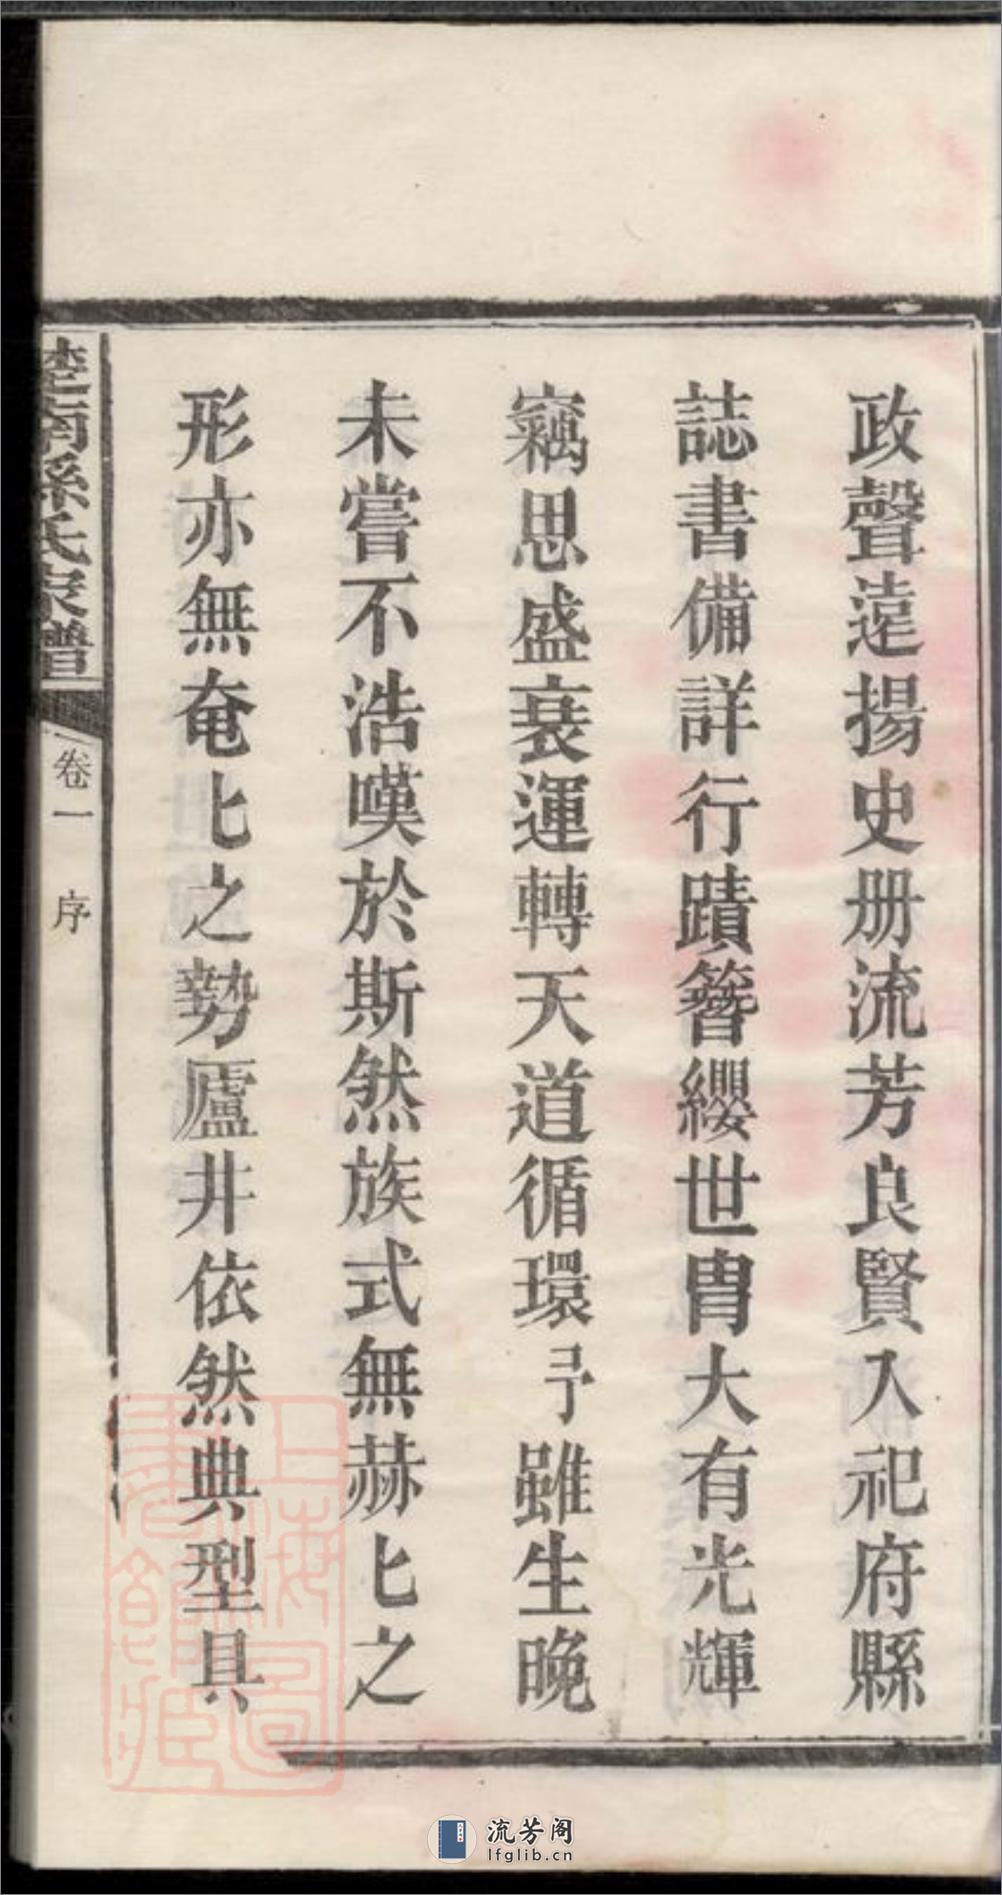 政聲遠揚史册流芳良賢入祀府縣
誌書備詳行蹟簪纓世胄大有光輝
竊思盛衰運轉天道循環予雖生晚
未嘗不浩嘆於斯然族式無赫匕之
形亦無奄匕之勢廬井依然典型具
楚南孫氏家譜
卷一 序
上海圖書館藏
流芳阁
lfglib.cn